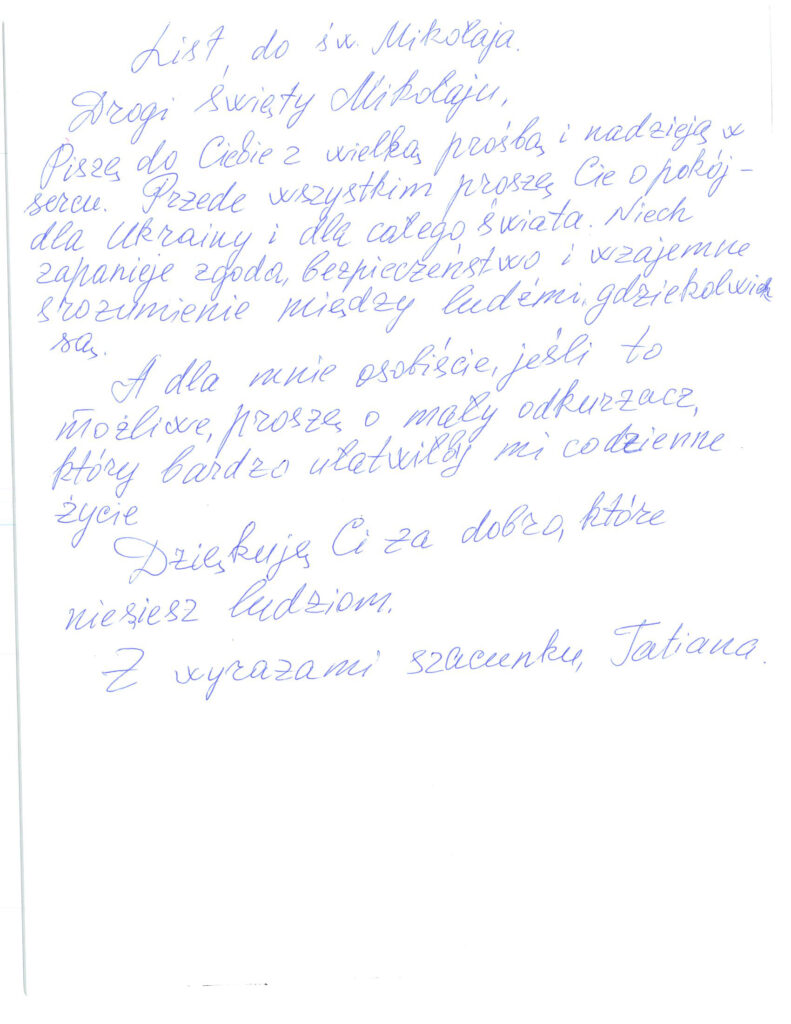 List do św. Mikołaja.
Drogi Święty Mikołaju,
Piszę do Ciebie z wielką prośbą i nadzieją w
sercu. Przede wszystkim proszę Cie o pokój –
dla Ukrainy i dla całego świata. Niech
zapanieje zgoda, bezpieczeństwo i wzajemne
srozumienie między ludźmi, gdziekolwiek
są.
A dla mnie osobiście, jeśli to
możliwe, proszę o mały odkurzacz,
który bardzo ułatwiłby mi codzienne
życie
Dziękuję Ci za dobro, które
niesiesz ludziom.
Z wyrazami szacunku, Tatiana.